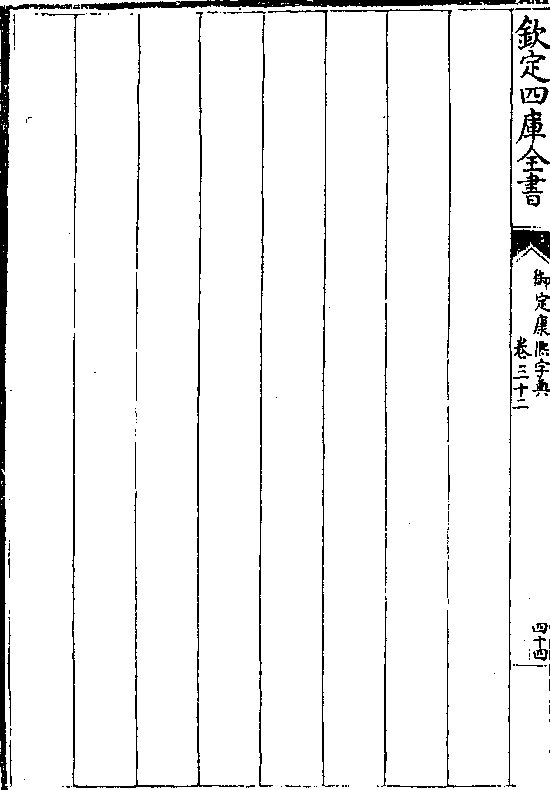 欽定四庫全書
御定康熙字典
卷三十二
四十四